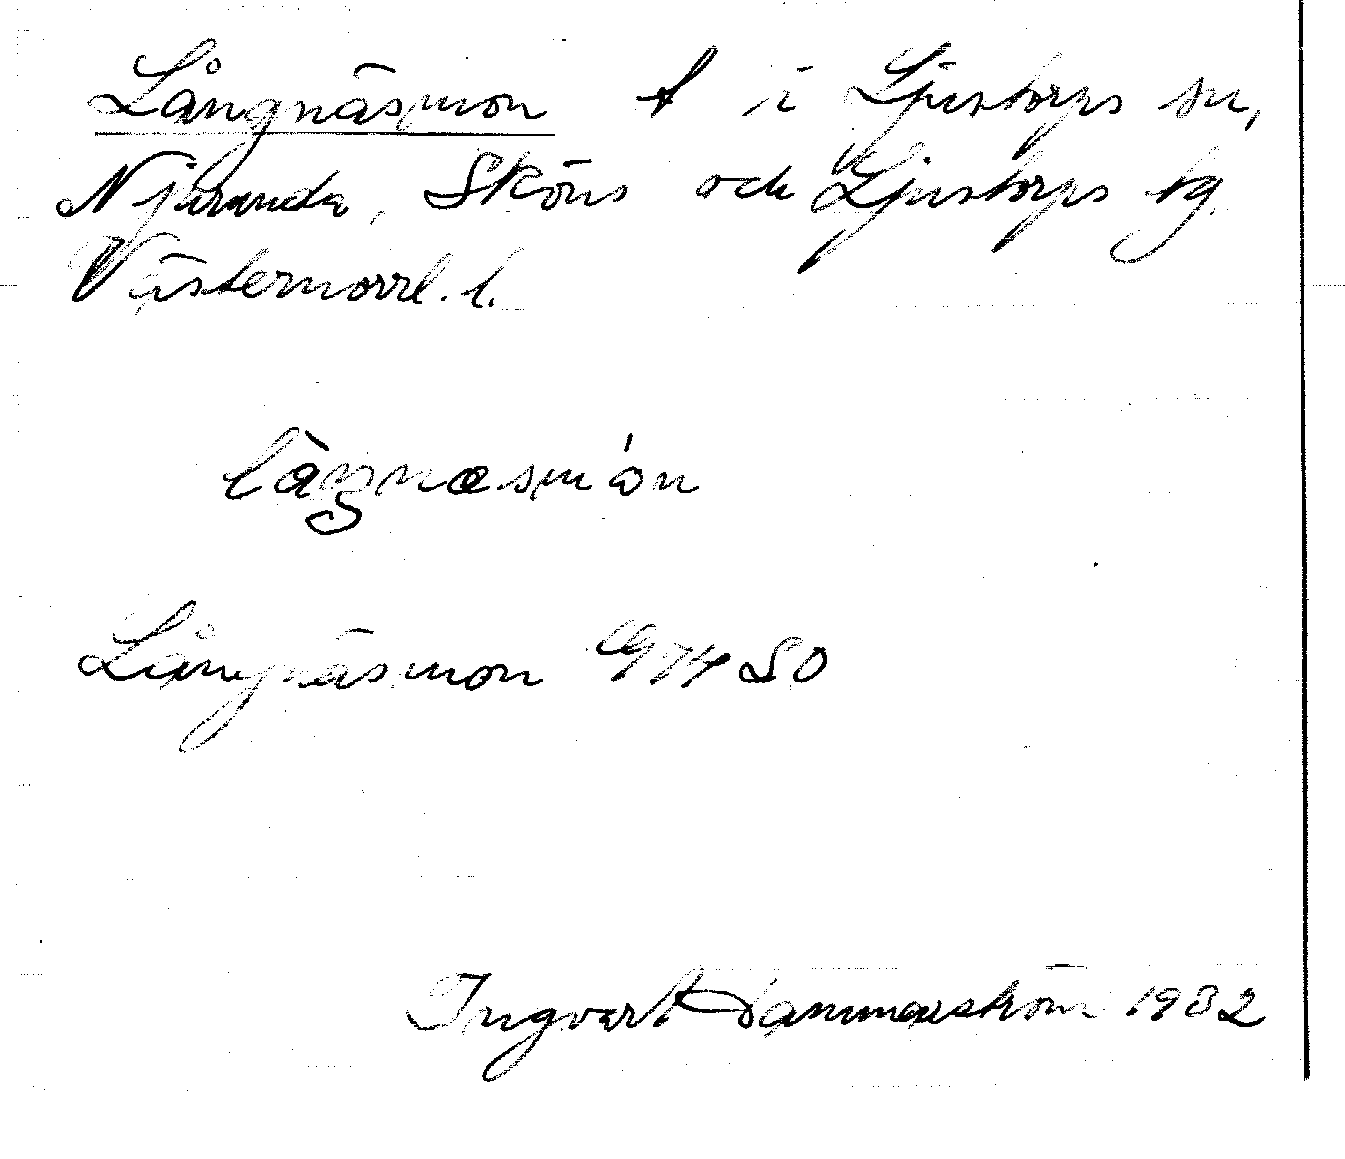 Långnäsmon t i Ljustorps sn,
Njurunda, Sköns och Ljustorps tg.
Västernorrl. l.
lågnæsmòn
Långnäsmon SO
Ingvart Hammarström 1932